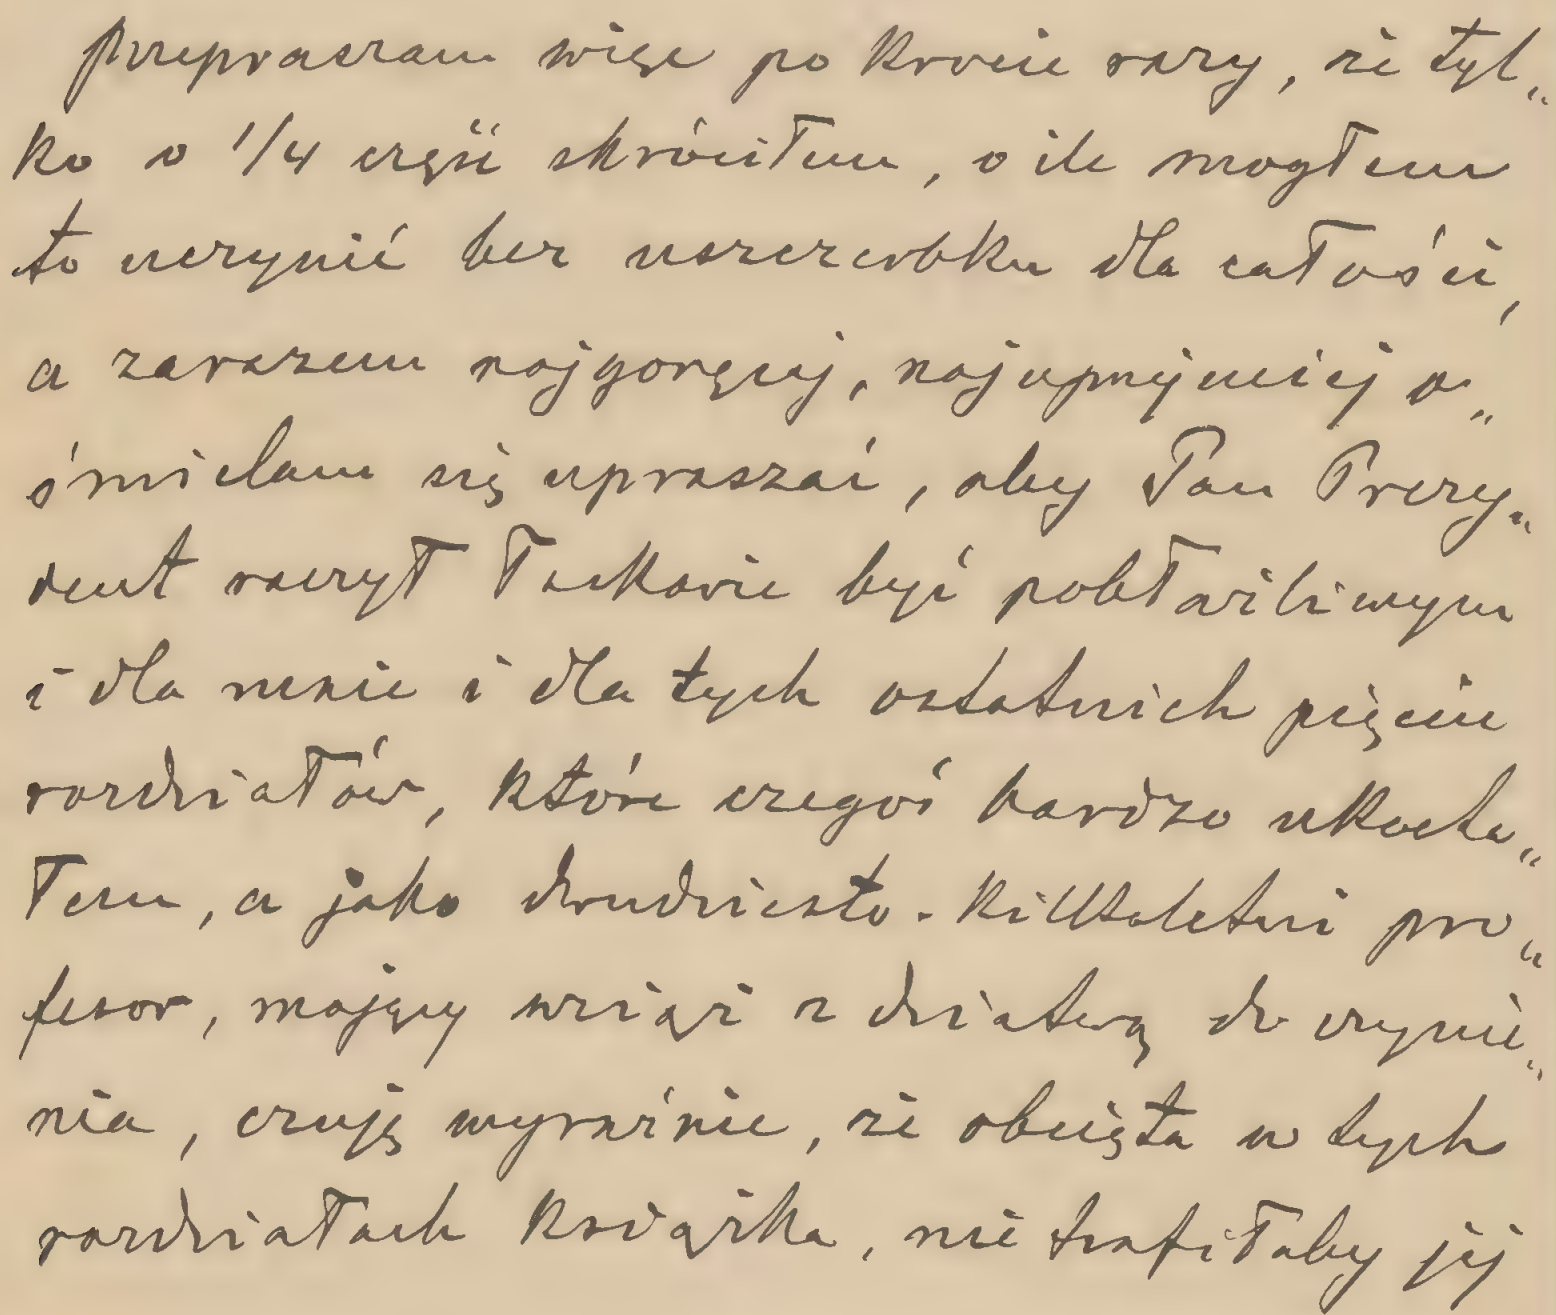 Przepraszam więc po krocie razy, że tyl„
ko o 1/4 część skróciłem, o ile mogłem
to uczynić bez uszczerbku dla całości,
a zarazem najgoręcej, najuprzejmiej o„
śmielam się upraszać, aby Pan Prezy„
dent raczył łaskawie być pobłażliwym
i dla mnie i dla tych ostatnich pięciu
rozdziałów, które czegoś bardzo ukocha„
łem, a jako dwudziesto-kilkoletni pro„
fesor, mający wciąż z dziatwą do czynie„
nia, czuję wyraźnie, że obcięta w tych
rozdziałach książka, nie trafiłaby jej